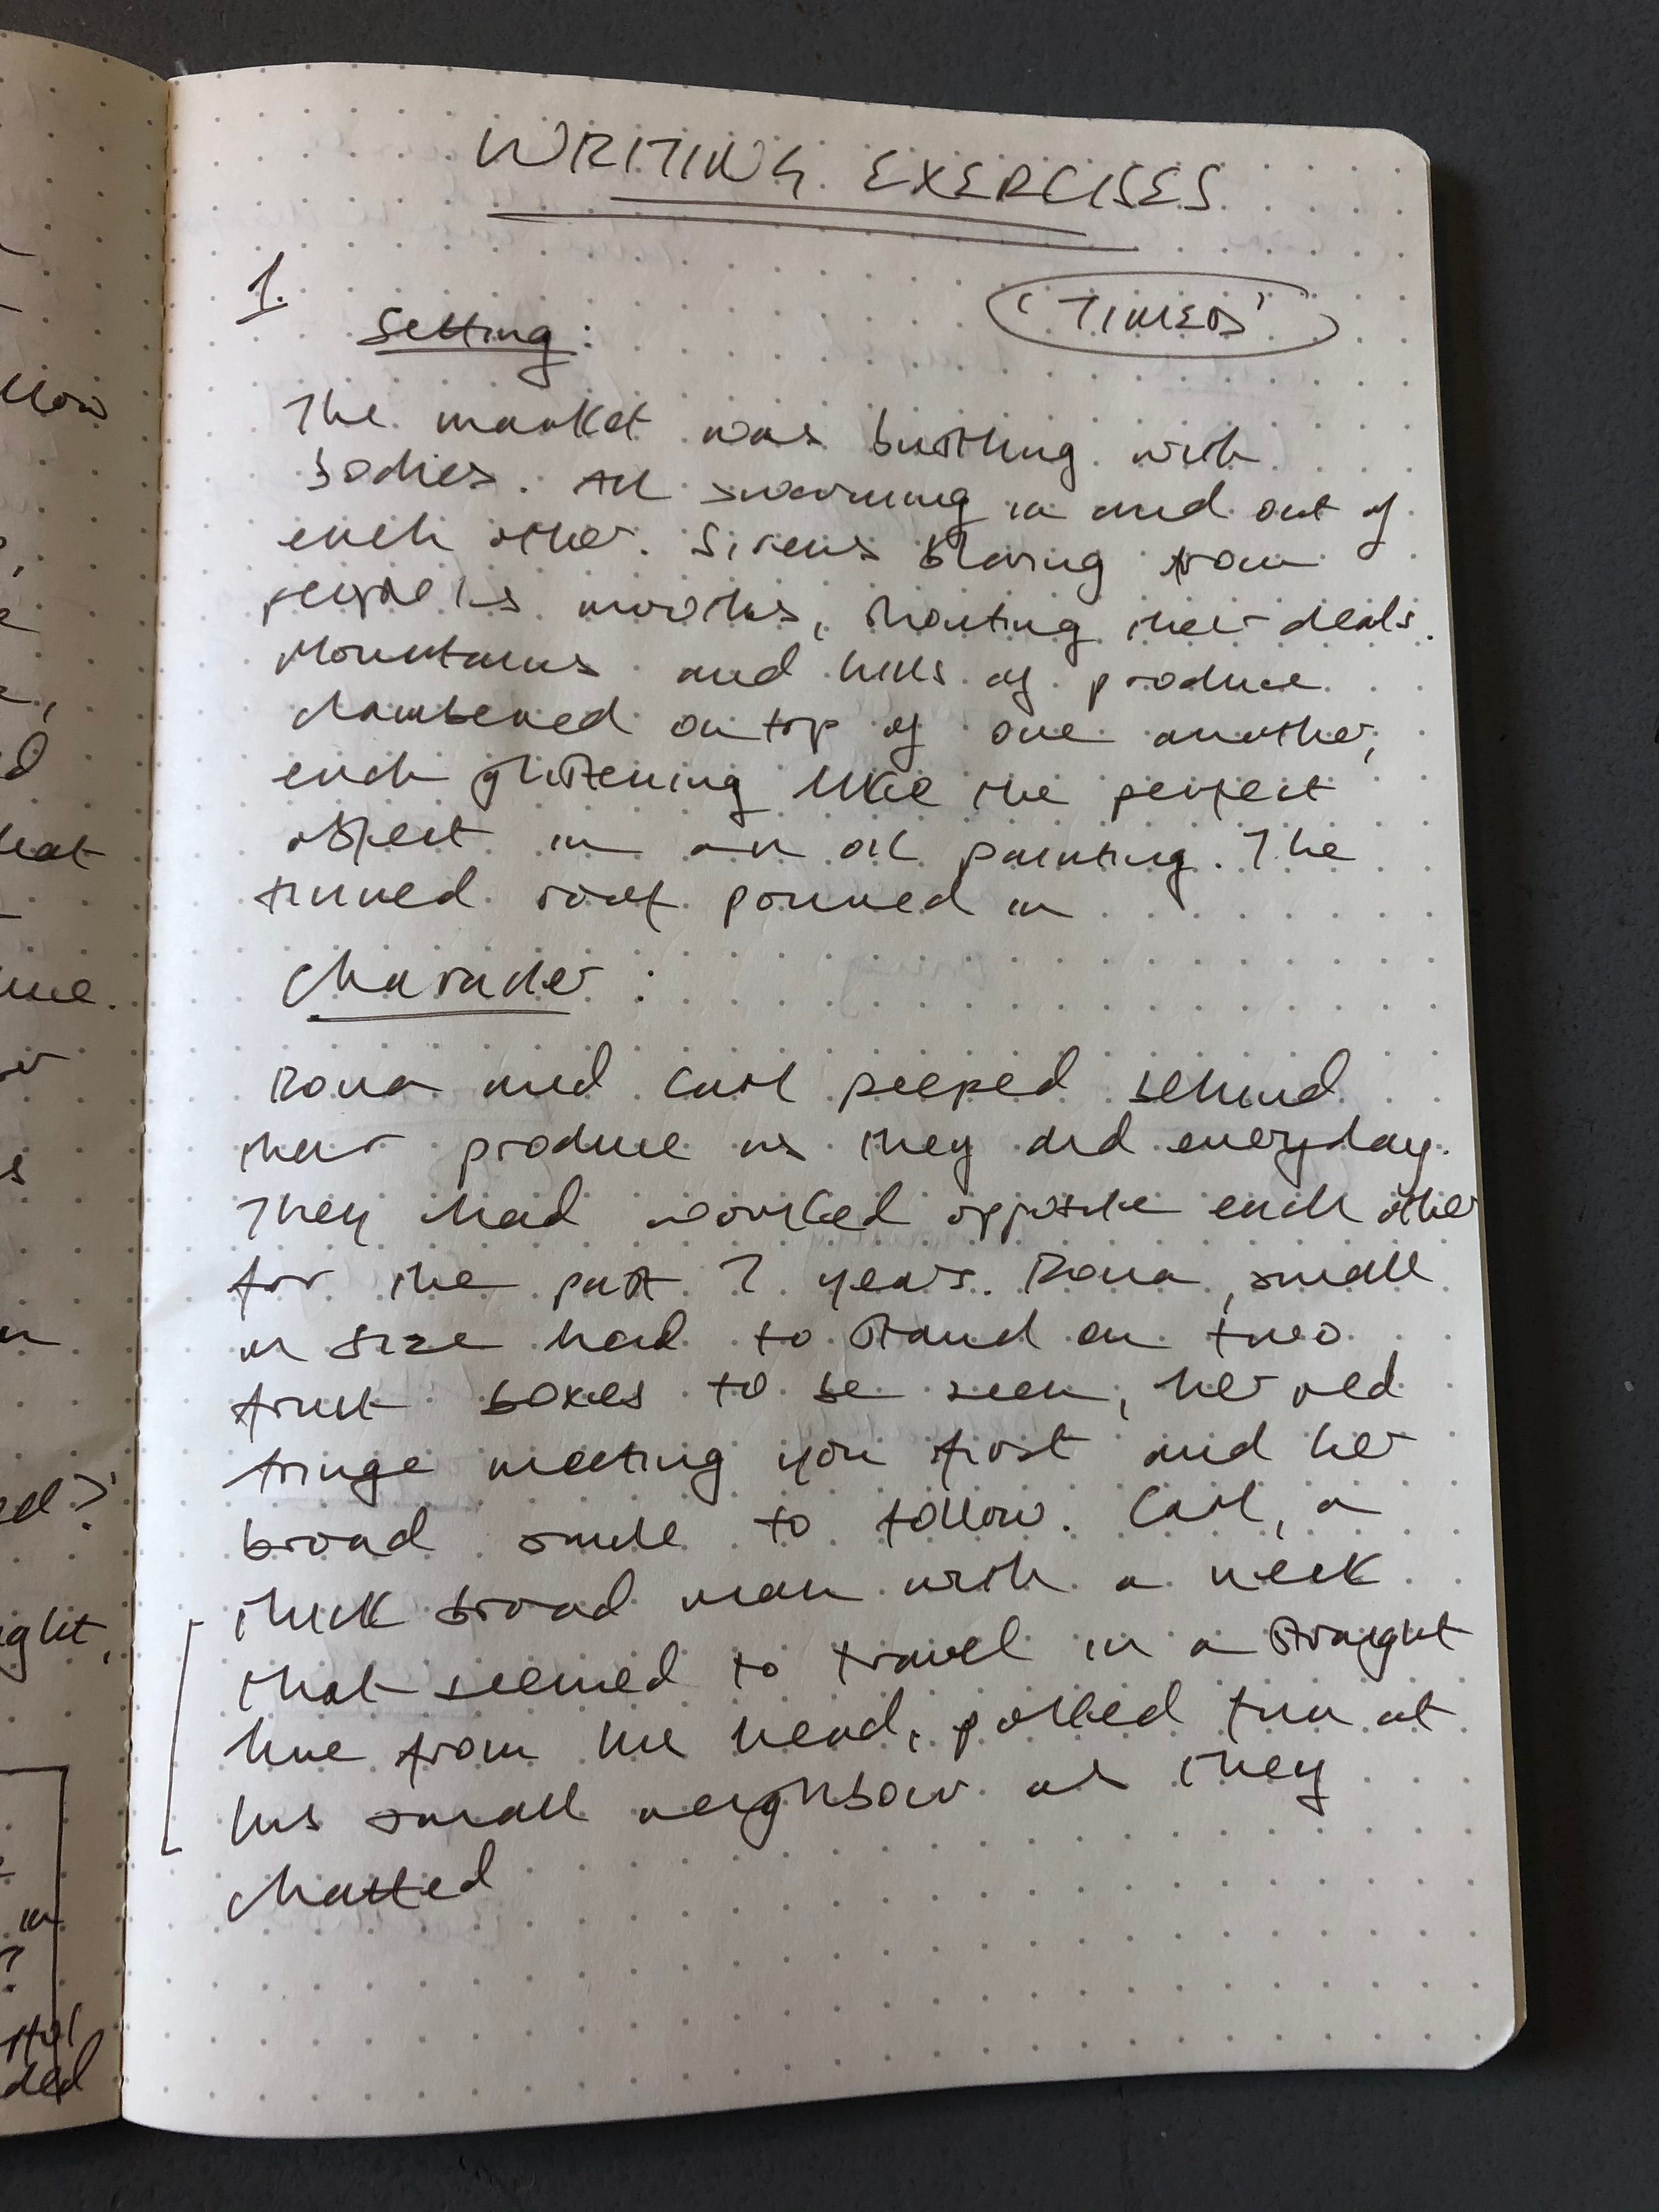 WRITING EXERCISES
1.
Setting:
'TIMED'
The market was bustling with
bodies. All swarming in and out of
each other. Sirens blaring from
people's mouths, shouting their deals.
Mountains and hills of produce
clambered on top of one another,
each glistening like the perfect
object in an oil painting. The
tinned roof poured in
Character:
Rona and Carl peeped behind
their produce as they did everyday.
They had worked opposite each other
for the past 7 years. Rona, small
in size had to stand on two
fruit boxes to be seen, her red
fringe meeting you first and her
broad smile to follow. Carl, a
thick broad man with a neck
that seemed to travel in a straight
line from his head, poked fun at
his small neighbour as they
chatted
llow
d
hat
me.
s
ed?'
ight,
in
?
ded